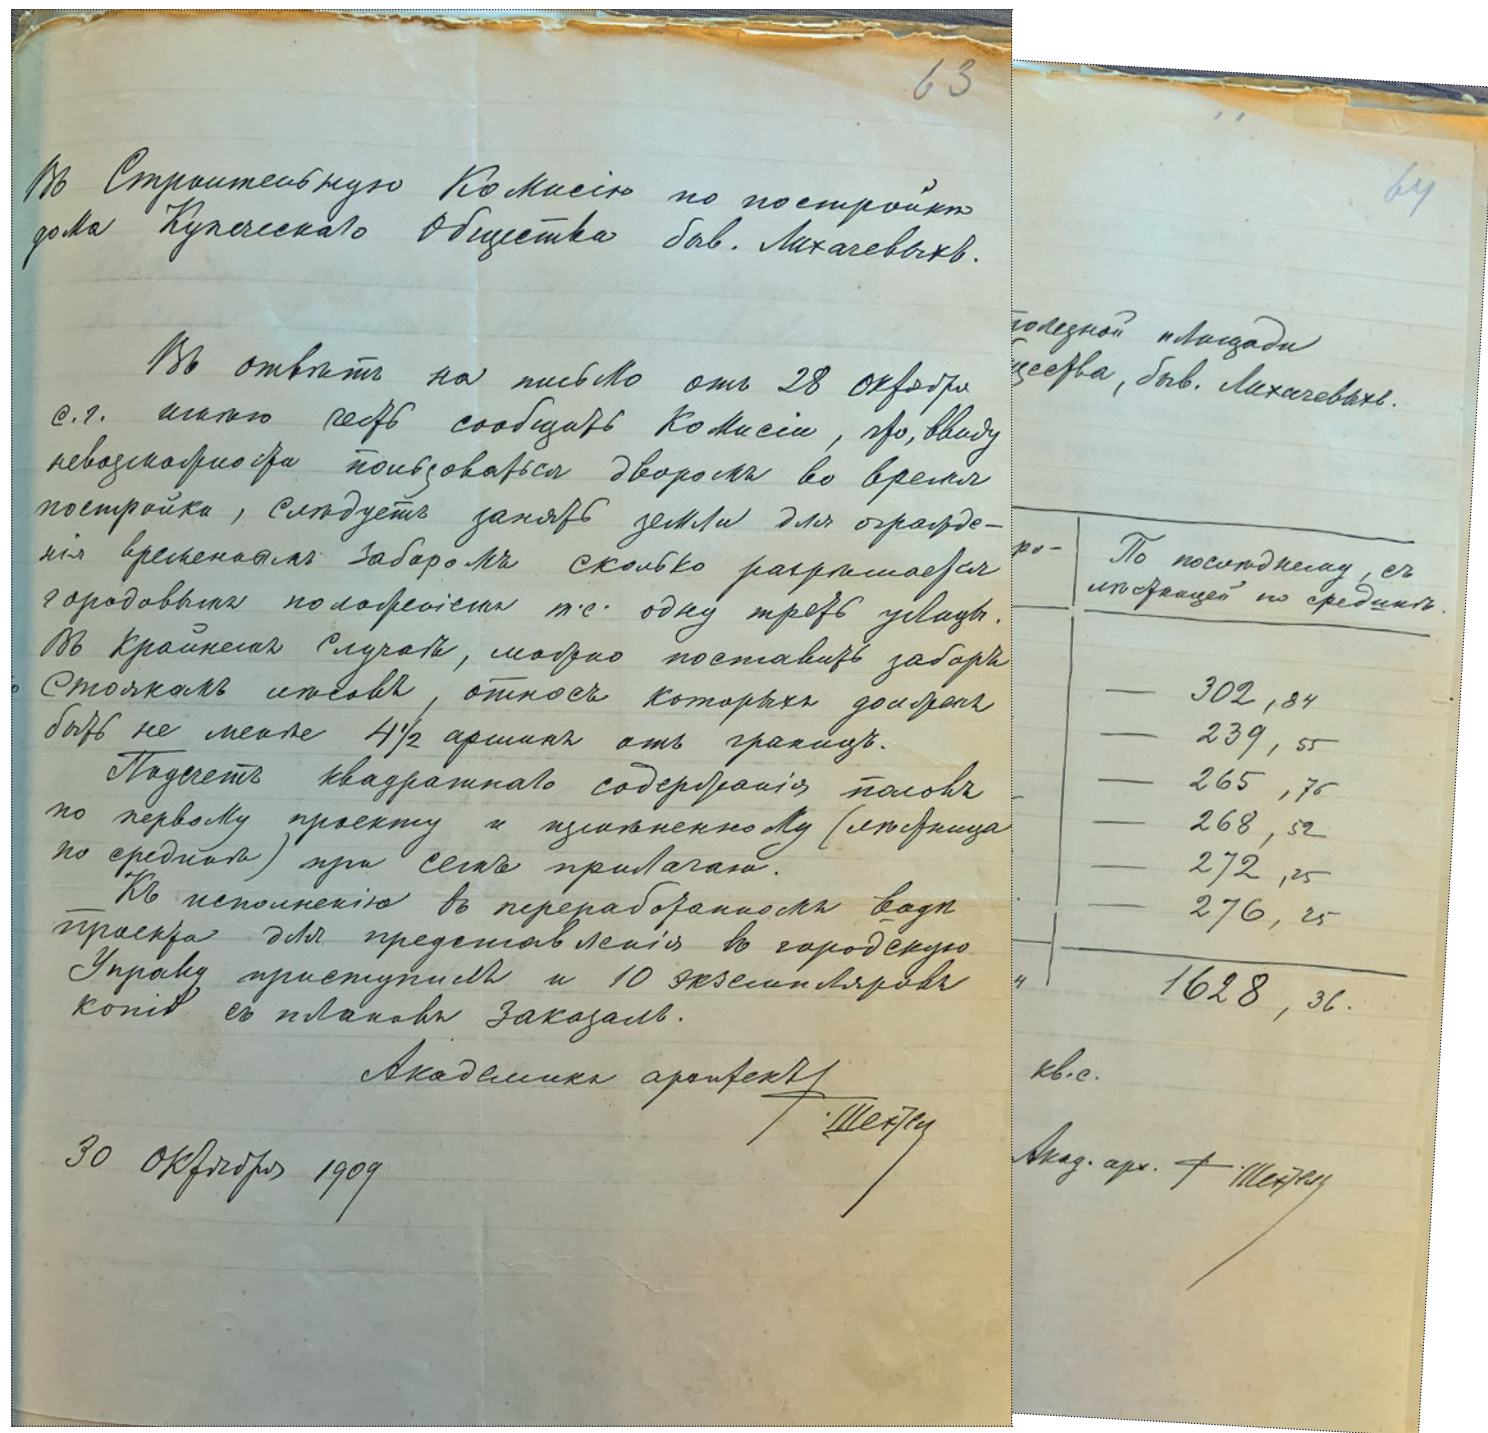 63
Въ Строительную Комисію по постройкѣ
дома Купеческаго Общества быв. Лихачевыхъ.
Въ отвѣтъ на письмо отъ 28 октября
с.г. имѣю честь сообщить Комисіи, что, ввиду
невозможности пользоваться дворомъ во время
постройки, слѣдуетъ занять земли для огражде-
нія временнымъ заборомъ сколько разрѣшается
городовымъ положеніемъ т.е. одну треть улицы.
Въ крайнемъ случаѣ, можно поставить заборъ
стоякамъ лѣсовъ, относъ которыхъ долженъ
быть не менѣе 4½ аршинъ отъ границъ.
Подсчетъ квадратнаго содержанія половъ
по первому проекту и измѣненному (лѣстница
по срединѣ) при семъ прилагаю.
Къ исполненію въ переработанномъ видѣ
проекта для представленія въ городскую
Управу приступилъ и 10 экземпляровъ
копій съ плановъ заказалъ.
Академикъ архитекторъ
Ф. Шехтель
30 октября 1909
64
полезной площади
щества, быв. Лихачевыхъ.
ро-
По послѣднему, съ
лѣстницей по срединѣ.
— 302,84
— 239,55
— 265,76
— 268,52
— 272,25
— 276,25
1628,36.
кв.с.
Акад. арх. Ф. Шехтель